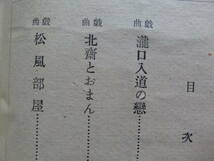 目次
戯曲 瀧口入道の戀……
戯曲 北齋とおまん……
戯曲 松風部屋……